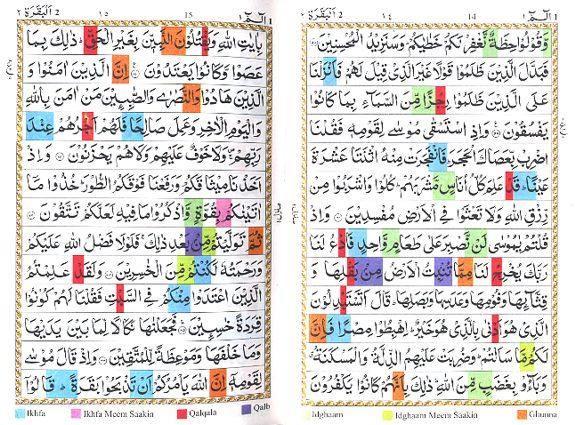 الٓمّٓ ١ 14 ١٤ البقرة 2 ٢
وَقُوْلُوْا حِطَّةٌ نَّغْفِرْ لَكُمْ خَطٰيٰكُمْ وَسَنَزِيْدُ الْمُحْسِنِيْنَ
فَبَدَّلَ الَّذِيْنَ ظَلَمُوْا قَوْلًا غَيْرَ الَّذِيْ قِيْلَ لَهُمْ فَاَنْزَلْنَا
عَلَى الَّذِيْنَ ظَلَمُوْا رِجْزًا مِّنَ السَّمَآءِ بِمَا كَانُوْا
يَفْسُقُوْنَ وَاِذِ اسْتَسْقٰى مُوْسٰى لِقَوْمِهٖ فَقُلْنَا
اضْرِبْ بِّعَصَاكَ الْحَجَرَ فَانْفَجَرَتْ مِنْهُ اثْنَتَا عَشْرَةَ
عَيْنًا قَدْ عَلِمَ كُلُّ اُنَاسٍ مَّشْرَبَهُمْ كُلُوْا وَاشْرَبُوْا مِنْ
رِّزْقِ اللّٰهِ وَلَا تَعْثَوْا فِى الْاَرْضِ مُفْسِدِيْنَ وَاِذْ
قُلْتُمْ يٰمُوْسٰى لَنْ نَّصْبِرَ عَلٰى طَعَامٍ وَّاحِدٍ فَادْعُ لَنَا
رَبَّكَ يُخْرِجْ لَنَا مِمَّا تُنْبِتُ الْاَرْضُ مِنْ بَقْلِهَا وَ
قِثَّآئِهَا وَفُوْمِهَا وَعَدَسِهَا وَبَصَلِهَا قَالَ اَتَسْتَبْدِلُوْنَ
الَّذِيْ هُوَ اَدْنٰى بِالَّذِيْ هُوَ خَيْرٌ اِهْبِطُوْا مِصْرًا فَاِنَّ
لَكُمْ مَّا سَاَلْتُمْ وَضُرِبَتْ عَلَيْهِمُ الذِّلَّةُ وَالْمَسْكَنَةُ
وَبَآءُوْ بِغَضَبٍ مِّنَ اللّٰهِ ذٰلِكَ بِاَنَّهُمْ كَانُوْا يَكْفُرُوْنَ
الٓمّٓ ١ 15 ١٢ البقرة 2 ٢
بِاٰيٰتِ اللّٰهِ وَيَقْتُلُوْنَ النَّبِيّٖنَ بِغَيْرِ الْحَقِّ ذٰلِكَ بِمَا
عَصَوْا وَّكَانُوْا يَعْتَدُوْنَ اِنَّ الَّذِيْنَ اٰمَنُوْا وَ
الَّذِيْنَ هَادُوْا وَالنَّصٰرٰى وَالصّٰبِـِٕيْنَ مَنْ اٰمَنَ بِاللّٰهِ
وَالْيَوْمِ الْاٰخِرِ وَعَمِلَ صَالِحًا فَلَهُمْ اَجْرُهُمْ عِنْدَ
رَبِّهِمْ وَلَا خَوْفٌ عَلَيْهِمْ وَلَا هُمْ يَحْزَنُوْنَ وَاِذْ
اَخَذْنَا مِيْثَاقَكُمْ وَرَفَعْنَا فَوْقَكُمُ الطُّوْرَ خُذُوْا مَآ
اٰتَيْنٰكُمْ بِقُوَّةٍ وَّاذْكُرُوْا مَا فِيْهِ لَعَلَّكُمْ تَتَّقُوْنَ
ثُمَّ تَوَلَّيْتُمْ مِّنْ بَعْدِ ذٰلِكَ فَلَوْلَا فَضْلُ اللّٰهِ عَلَيْكُمْ
وَرَحْمَتُهٗ لَكُنْتُمْ مِّنَ الْخٰسِرِيْنَ وَلَقَدْ عَلِمْتُمُ
الَّذِيْنَ اعْتَدَوْا مِنْكُمْ فِى السَّبْتِ فَقُلْنَا لَهُمْ كُوْنُوْا
قِرَدَةً خٰسِـِٕيْنَ فَجَعَلْنٰهَا نَكَالًا لِّمَا بَيْنَ يَدَيْهَا
وَمَا خَلْفَهَا وَمَوْعِظَةً لِّلْمُتَّقِيْنَ وَاِذْ قَالَ مُوْسٰى
لِقَوْمِهٖٓ اِنَّ اللّٰهَ يَاْمُرُكُمْ اَنْ تَذْبَحُوْا بَقَرَةً قَالُوْٓا
Ikhfa Ikhfa Meem Saakin Qalqala Qalb Idghaam Idghaam Meem Saakin Ghunna